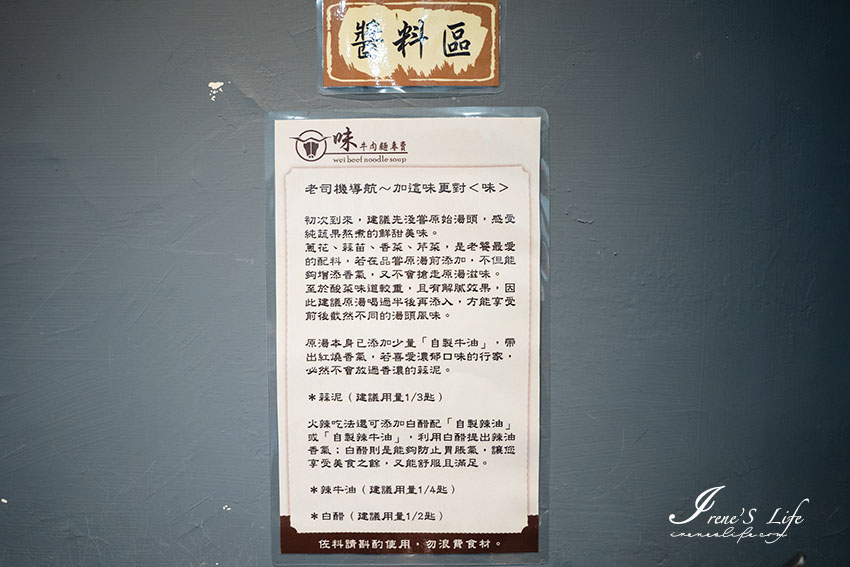 醬料區
味 牛肉麵專賣
wei beef noodle soup
老司機導航～加這味更對＜味＞
初次到來，建議先淺嘗原始湯頭，感受
純蔬果熬煮的鮮甜美味。
蔥花、蒜苗、香菜、芹菜，是老饕最愛
的配料，若在品嘗原湯前添加，不但能
夠增添香氣，又不會搶走原湯滋味。
至於酸菜味道較重，且有解膩效果，因
此建議原湯喝過半後再添入，方能享受
前後截然不同的湯頭風味。
原湯本身已添加少量「自製牛油」，帶
出紅燒香氣，若喜愛濃郁口味的行家，
必然不會放過香濃的蒜泥。
＊蒜泥（建議用量1/3匙）
火辣吃法還可添加白醋配「自製辣油」
或「自製辣牛油」，利用白醋提出辣油
香氣；白醋則是能夠防止胃脹氣，讓您
享受美食之餘，又能舒服且滿足。
＊辣牛油（建議用量1/4匙）
＊白醋（建議用量1/2匙）
佐料請斟酌使用，勿浪費食材。
Irene'S Life
ireneslife.com